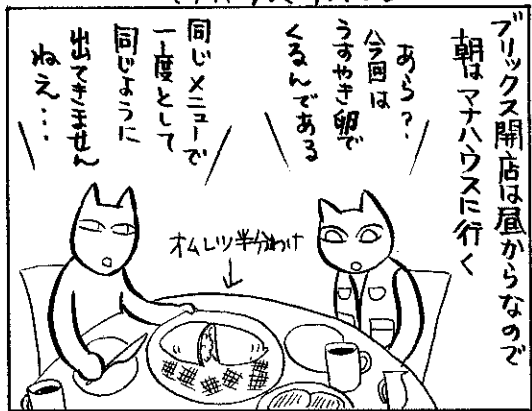 ブリックス開店は昼からなので
朝はマナハウスに行く
あら?
今回は
うすやき卵で
くるんである
同じメニューで
一度として
同じように
出てきません
ねえ…
オムレツ半分わけ